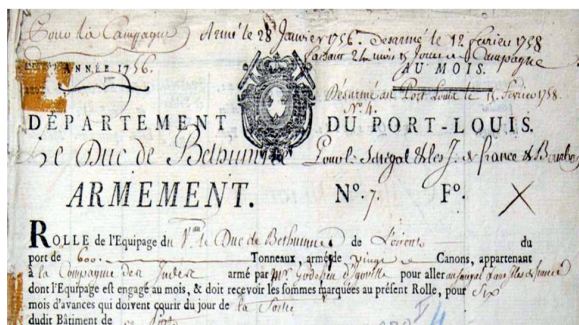 Pour la Campagne Armé le 28 Janvier 1756. Desarmé le 12 fevrier 1758
faisant 24 mois 15 Jours de Campagne
ANNÉE 1756. AU MOIS.
Désarmé au Port Louis le 15. fevrier 1758.
N°. 4.
DÉPARTEMENT DU PORT-LOUIS.
Le Duc de Bethunne Pour le Senégal & les J. de france & Bourbon
ARMEMENT. N°. 7. F°.
ROLLE de l'Equipage du Vau le Duc de Bethunne de L'orient du
port de 600 Tonneaux, armé de vingt Canons, appartenant
à la Compagnie des Indes armé par Mr. pour aller
dont l'Equipage est engagé au mois, & doit recevoir les sommes marquées au présent Rolle, pour Six
mois d'avances qui doivent courir du jour de la Sortie
dudit Bâtiment de